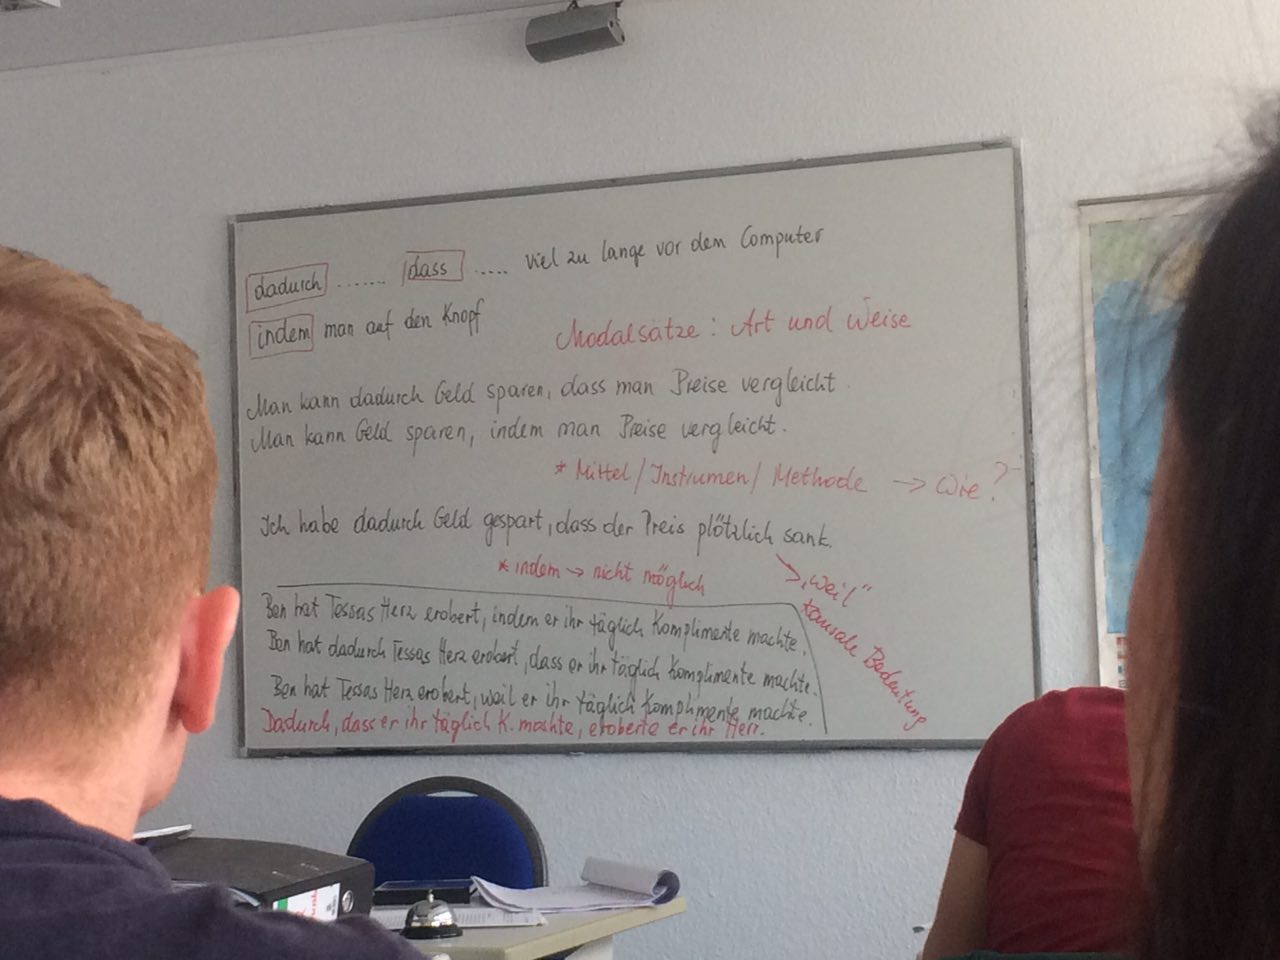 dadurch ....... dass ..... viel zu lange vor dem Computer
indem man auf den Knopf
Modalsätze : Art und Weise
Man kann dadurch Geld sparen, dass man Preise vergleicht.
Man kann Geld sparen, indem man Preise vergleicht.
* Mittel / Instrumen / Methode → Wie?
Ich habe dadurch Geld gespart, dass der Preis plötzlich sank.
* indem → nicht möglich
→ „weil“
kausale Bedeutung
Ben hat Tessas Herz erobert, indem er ihr täglich Komplimente machte.
Ben hat dadurch Tessas Herz erobert, dass er ihr täglich Komplimente machte.
Ben hat Tessas Herz erobert, weil er ihr täglich Komplimente machte.
Dadurch, dass er ihr täglich K. machte, eroberte er ihr Herz.